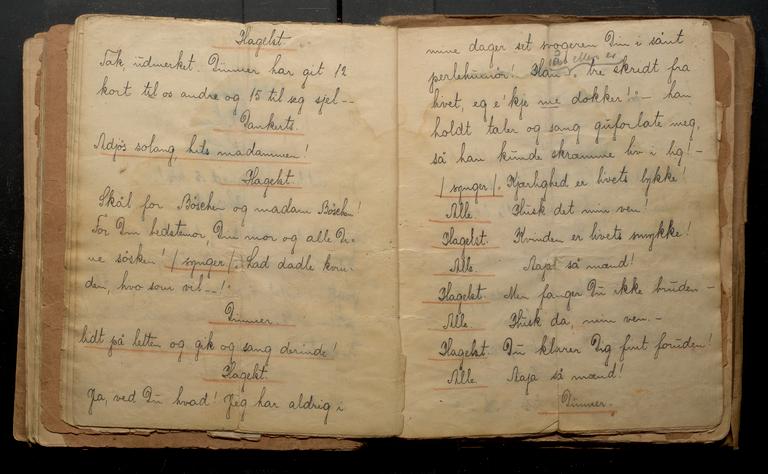 Hagelst.
Tak, udmerket. Dümmer har git 12
kort til os andre og 15 til seg sjel --
Dankerts.
Adjös solang, hils madammen!
Hagelst.
Skål for Böschen og madam Böschen!
For Din bedstemor, Din mor og alle Di-
ne søsken! / synger /. Lad dadle kvin-
den, hvo som vil --!
Dümmer.
lidt på letten og gik og sang derinde!
Hagelst.
Ja, ved Du hvad! Jeg har aldrig i
mine dager set svogeren Din i sånt
perlehumør! Han
tre skridt fra
livet, eg e'kje me dokker!" - han
holdt taler og sang guforlate meg,
så han kunde skræmme liv i lig! -
/ synger /. Kjærlighed er livets lykke!
Alle. Husk det min ven!
Hagelst. Kvinden er livets smykke!
Alle. Aaja så mænd!
Hagelst. Men fanger Du ikke bruden -
Alle. Husk da, min ven. -
Hagelst. Du klarer Dig fint foruden!
Alle. Aaja så mænd!
Dümmer.